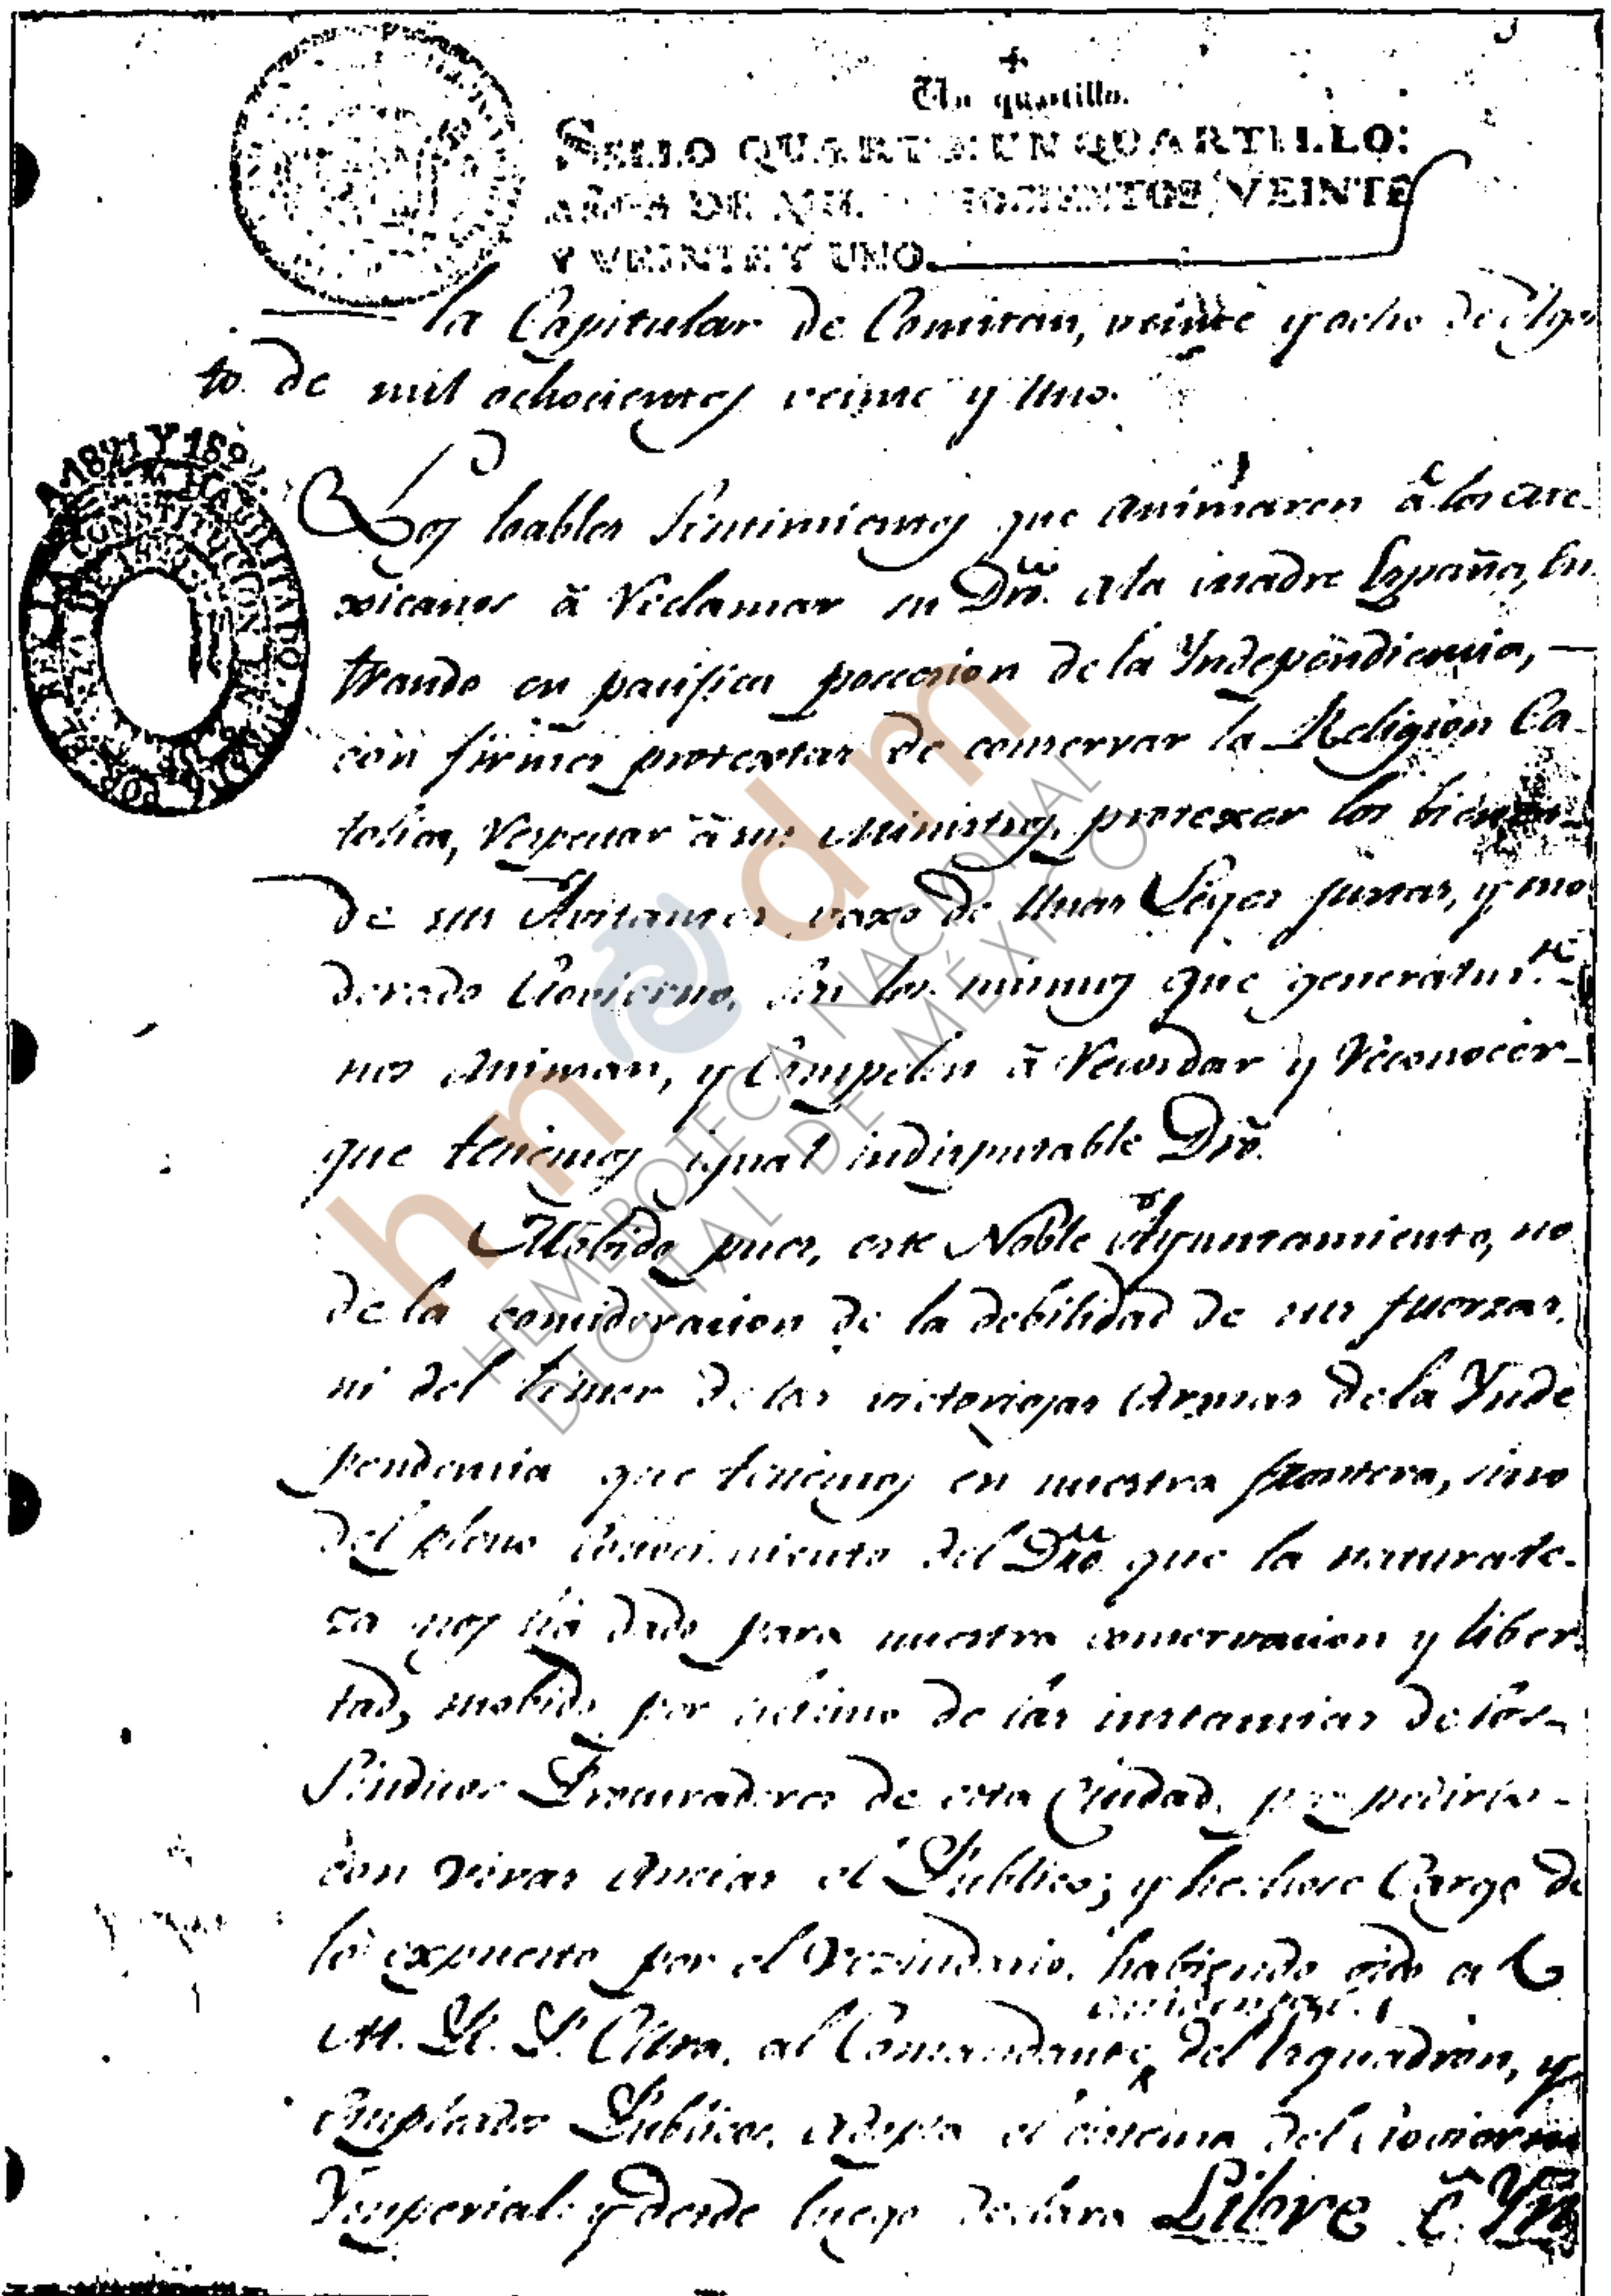 Un quartillo.
SELLO QUARTO UN QUARTILLO:
AÑOS DE MIL OCHOCIENTOS VEINTE
Y VEINTE Y UNO.
la Capitular de Comitan, veinte y ocho de Agos
to de mil ochocientos veinte y uno.
Los loables sentimientos que animaron â los me-
xicanos â reclamar su Dro. a la madre España, en
trando en pacifica poccecion de la Yndependiencia,
con firmes protextas de conservar la Religion Ca-
tolica, respetar â sus Ministros, protexer los bienes
de sus Avitantes, vaxo de unas Leyes justas, y mo
derado Govierno, son los mismos que generalm.te
nos animan, y compelen â recordar y reconocer-
que tenemos igual indisputable Dro.
Mobido pues, este Noble Ayuntamiento, no
de la concideracion de la debilidad de sus fuerzas,
ni del temor de las victoriosas Armas de la Ynde
pendencia que tenemos en nuestra frontera, sino
del pleno conocimiento del Dro. que la naturale-
za nos ha dado para nuestra conservacion y liber
tad, mobido por ultimo de las instancias de los-
Sindicos Procuradores de esta Ciudad, por pedirlo-
con vivas ancias el Publico; y hechose Cargo de
lo expuesto por el Vezindario, habiendo oido a l
M. R. P. Cura, al Comandante del Esquadron, y
accidental
Empleados Publicos, adopta el cistema del Govierno
Ymperial: y desde luego declara Libre é Yn
1821 Y 182
HABILITADO
CONSTITUCION
hndm
HEMEROTECA NACIONAL
DIGITAL DE MÉXICO